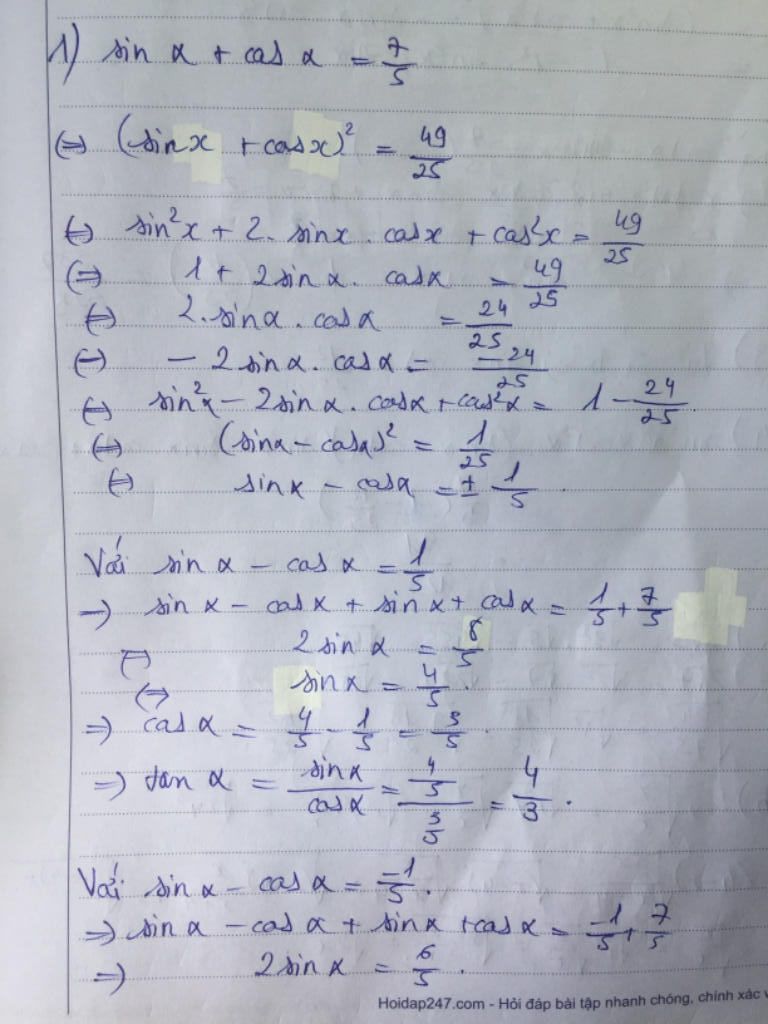 1) sin α + cos α = 7/5
⇔ (sinx + cosx)² = 49/25
⇔ sin²x + 2. sinx . cosx + cos²x = 49/25
⇔ 1 + 2sinα. cosα = 49/25
⇔ 2.sinα.cosα = 24/25
⇔ - 2sinα. cosα = -24/25
⇔ sin²α - 2sinα. cosα + cos²α = 1 - 24/25.
⇔ (sinα - cosα)² = 1/25
⇔ sinα - cosα = ± 1/5.
Với sin α - cos α = 1/5
⇒ sin α - cosα + sinα + cosα = 1/5 + 7/5
⇔ 2sin α = 8/5
⇔ sinα = 4/5.
⇒ cosα = 4/5 - 1/5 = 3/5
⇒ tan α = sinα/cosα = 4/5 / 3/5 = 4/3.
Với sinα - cosα = -1/5.
⇒ sinα - cosα + sinα + cosα = -1/5 + 7/5
⇒ 2sinα = 6/5.
Hoidap247.com - Hỏi đáp bài tập nhanh chóng, chính xác